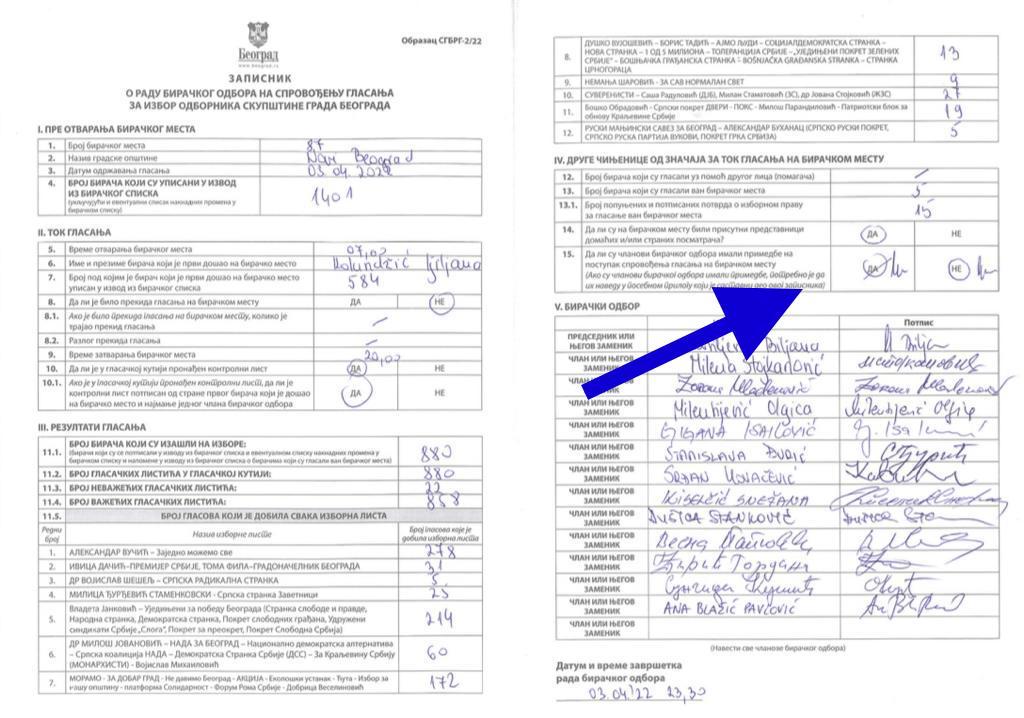 Београд
www.beograd.rs
Образац СГБРГ-2/22
ЗАПИСНИК
О РАДУ БИРАЧКОГ ОДБОРА НА СПРОВОЂЕЊУ ГЛАСАЊА
ЗА ИЗБОР ОДБОРНИКА СКУПШТИНЕ ГРАДА БЕОГРАДА
I. ПРЕ ОТВАРАЊА БИРАЧКОГ МЕСТА
1. Број бирачког места 87
2. Назив градске општине Novi Beograd
3. Датум одржавања гласања 03.04.2022
4. БРОЈ БИРАЧА КОЈИ СУ УПИСАНИ У ИЗВОД
ИЗ БИРАЧКОГ СПИСКА 1401
(укључујући и евентуални списак накнадних промена у
бирачком списку)
II. ТОК ГЛАСАЊА
5. Време отварања бирачког места 07,00
6. Име и презиме бирача који је први дошао на бирачко место Kolundžić Ljiljana
7. Број под којим је бирач који је први дошао на бирачко место
уписан у извод из бирачког списка 584
8. Да ли је било прекида гласања на бирачком месту ДА НЕ
8.1. Ако је било прекида гласања на бирачком месту, колико је
трајао прекид гласања
8.2. Разлог прекида гласања
9. Време затварања бирачког места 20,00
10. Да ли је у гласачкој кутији пронађен контролни лист ДА НЕ
10.1. Ако је у гласачкој кутији пронађен контролни лист, да ли је
контролни лист потписан од стране првог бирача који је дошао
на бирачко место и најмање једног члана бирачког одбора ДА НЕ
III. РЕЗУЛТАТИ ГЛАСАЊА
11.1. БРОЈ БИРАЧА КОЈИ СУ ИЗАШЛИ НА ИЗБОРЕ: 880
(бирачи који су се потписали у изводу из бирачког списка и евентуалном списку накнадних промена у
бирачком списку и напомене у изводу из бирачког списка о бирачима који су гласали ван бирачког места)
11.2. БРОЈ ГЛАСАЧКИХ ЛИСТИЋА У ГЛАСАЧКОЈ КУТИЈИ: 880
11.3. БРОЈ НЕВАЖЕЋИХ ГЛАСАЧКИХ ЛИСТИЋА: 22
11.4. БРОЈ ВАЖЕЋИХ ГЛАСАЧКИХ ЛИСТИЋА: 858
11.5. БРОЈ ГЛАСОВА КОЈИ ЈЕ ДОБИЛА СВАКА ИЗБОРНА ЛИСТА
Редни број Назив изборне листе Број гласова које је добила изборна листа
1. АЛЕКСАНДАР ВУЧИЋ – Заједно можемо све 278
2. ИВИЦА ДАЧИЋ-ПРЕМИЈЕР СРБИЈЕ, ТОМА ФИЛА–ГРАДОНАЧЕЛНИК БЕОГРАДА 31
3. ДР ВОЈИСЛАВ ШЕШЕЉ – СРПСКА РАДИКАЛНА СТРАНКА 5
4. МИЛИЦА ЂУРЂЕВИЋ СТАМЕНКОВСКИ - Српска странка Заветници 25
5. Владета Јанковић – Уједињени за победу Београда (Странка слободе и правде,
Народна странка, Демократска странка, Покрет слободних грађана, Удружени
синдикати Србије „Слога“, Покрет за преокрет, Покрет Слободна Србија) 214
6. ДР МИЛОШ ЈОВАНОВИЋ – НАДА ЗА БЕОГРАД – Национално демократска алтернатива
– Српска коалиција НАДА – Демократска Странка Србије (ДСС) – За Краљевину Србију
(МОНАРХИСТИ) - Војислав Михаиловић 60
7. МОРАМО - ЗА ДОБАР ГРАД - Не давимо Београд - АКЦИЈА - Еколошки устанак - Ћута - Избор за
нашу општину - платформа Солидарност - Форум Рома Србије - Добрица Веселиновић 172
8. ДУШКО ВУЈОШЕВИЋ – БОРИС ТАДИЋ – АЈМО ЉУДИ – СОЦИЈАЛДЕМОКРАТСКА СТРАНКА –
НОВА СТРАНКА – 1 ОД 5 МИЛИОНА – ТОЛЕРАНЦИЈА СРБИЈЕ – „УЈЕДИЊЕНИ ПОКРЕТ ЗЕЛЕНИХ
СРБИЈЕ“ – БОШЊАЧКА ГРАЂАНСКА СТРАНКА - BOŠNJAČKA GRAĐANSKA STRANKA – СТРАНКА
ЦРНОГОРАЦА 13
9. НЕМАЊА ШАРОВИЋ - ЗА САВ НОРМАЛАН СВЕТ 9
10. СУВЕРЕНИСТИ – Саша Радуловић (ДЈБ), Милан Стаматовић (ЗС), др Јована Стојковић (ЖЗС) 27
11. Бошко Обрадовић - Српски покрет ДВЕРИ - ПОКС - Милош Парандиловић - Патриотски блок за
обнову Краљевине Србије 19
12. РУСКИ МАЊИНСКИ САВЕЗ ЗА БЕОГРАД – АЛЕКСАНДАР БУХАНАЦ (СРПСКО РУСКИ ПОКРЕТ,
СРПСКО РУСКА ПАРТИЈА ВУКОВИ, ПОКРЕТ ГРКА СРБИЈА) 5
IV. ДРУГЕ ЧИЊЕНИЦЕ ОД ЗНАЧАЈА ЗА ТОК ГЛАСАЊА НА БИРАЧКОМ МЕСТУ
12. Број бирача који су гласали уз помоћ другог лица (помагача)
13. Број бирача који су гласали ван бирачког места 5
13.1. Број попуњених и потписаних потврда о изборном праву
за гласање ван бирачког места 15
14. Да ли су на бирачком месту били присутни представници
домаћих и/или страних посматрача? ДА НЕ
15. Да ли су чланови бирачког одбора имали примедбе на
поступак спровођења гласања на бирачком месту ДА НЕ
(Ако су чланови бирачког одбора имали примедбе, потребно је да
их наведу у посебном прилогу који је саставни део овог записника)
V. БИРАЧКИ ОДБОР
Потпис
ПРЕДСЕДНИК ИЛИ
ЊЕГОВ ЗАМЕНИК Biljana
ЧЛАН ИЛИ ЊЕГОВ
ЗАМЕНИК Milena Stojkanović
ЧЛАН ИЛИ ЊЕГОВ
ЗАМЕНИК
ЧЛАН ИЛИ ЊЕГОВ
ЗАМЕНИК Olgica
ЧЛАН ИЛИ ЊЕГОВ
ЗАМЕНИК ISAILOVIĆ
ЧЛАН ИЛИ ЊЕГОВ
ЗАМЕНИК STANISLAVA ĐURIĆ
ЧЛАН ИЛИ ЊЕГОВ
ЗАМЕНИК
ЧЛАН ИЛИ ЊЕГОВ
ЗАМЕНИК SNEŽANA
ЧЛАН ИЛИ ЊЕГОВ
ЗАМЕНИК DUŠICA STANKOVIĆ
ЧЛАН ИЛИ ЊЕГОВ
ЗАМЕНИК Весна
ЧЛАН ИЛИ ЊЕГОВ
ЗАМЕНИК
ЧЛАН ИЛИ ЊЕГОВ
ЗАМЕНИК
ЧЛАН ИЛИ ЊЕГОВ
ЗАМЕНИК ANA BLAŽIĆ PAVLOVIĆ
ЧЛАН ИЛИ ЊЕГОВ
ЗАМЕНИК
(Навести све чланове бирачког одбора)
Датум и време завршетка
рада бирачког одбора
03.04.'22 23,30